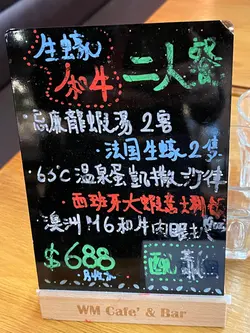 生蠔
和牛 二人餐
·忌廉龍蝦湯2客
·法国生蠔2隻
·63°C溫泉蛋凱撒沙律
·西班牙大蝦意士
·澳洲M6和牛肉眼
$688
WM Cafe' & Bar